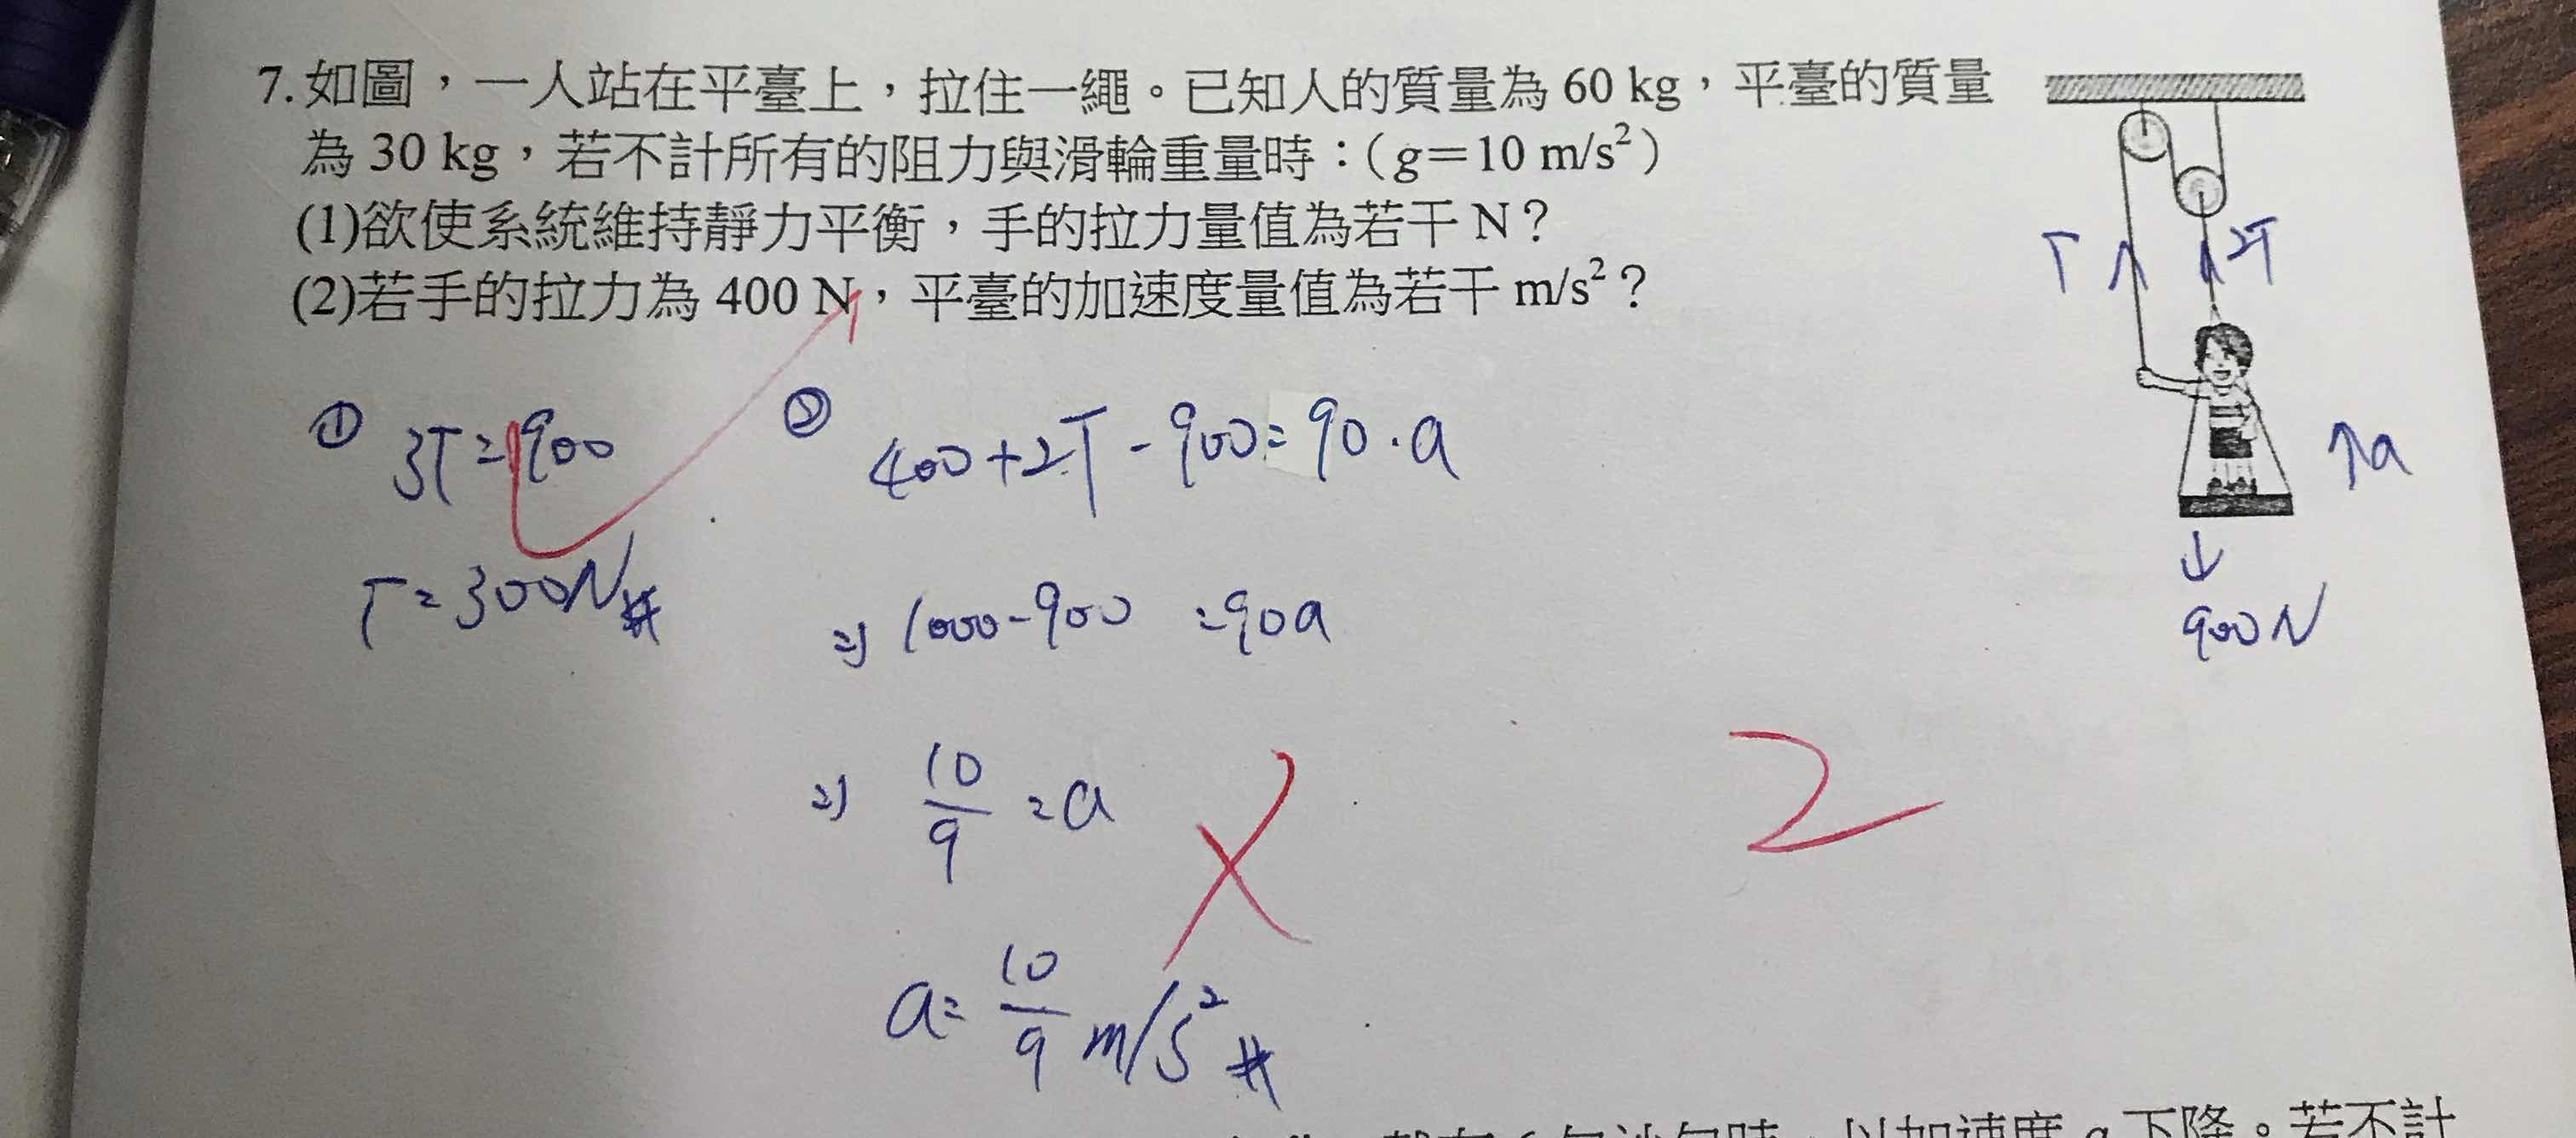 7. 如圖，一人站在平臺上，拉住一繩。已知人的質量為 60 kg，平臺的質量
為 30 kg，若不計所有的阻力與滑輪重量時：（g＝10 m/s²）
(1)欲使系統維持靜力平衡，手的拉力量值為若干 N？
(2)若手的拉力為 400 N，平臺的加速度量值為若干 m/s²？
T 2T
↑a
900N
① 3T=900
T=300N#
② 400+2T-900=90·a
⇒ 1000-900 =90a
⇒ 10/9 =a
a= 10/9 m/s² #
2